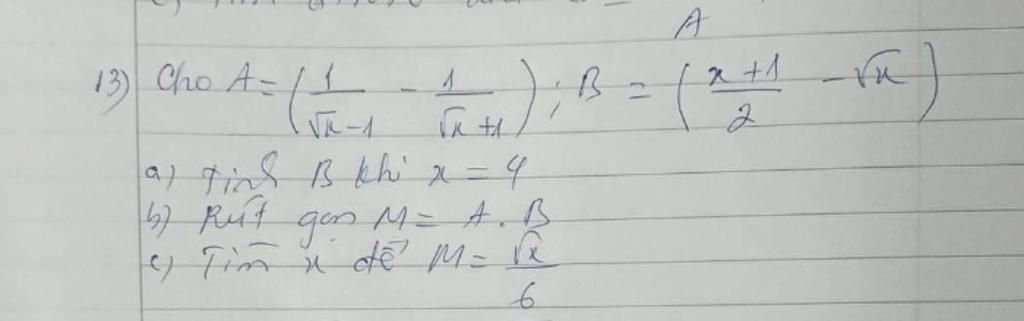 A
13) Cho A = (1/(√x-1) - 1/(√x+1)); B = ((x+1)/2 - √x)
a) Tính B khi x = 4
b) Rút gọn M = A.B
c) Tìm x để M = √x/6